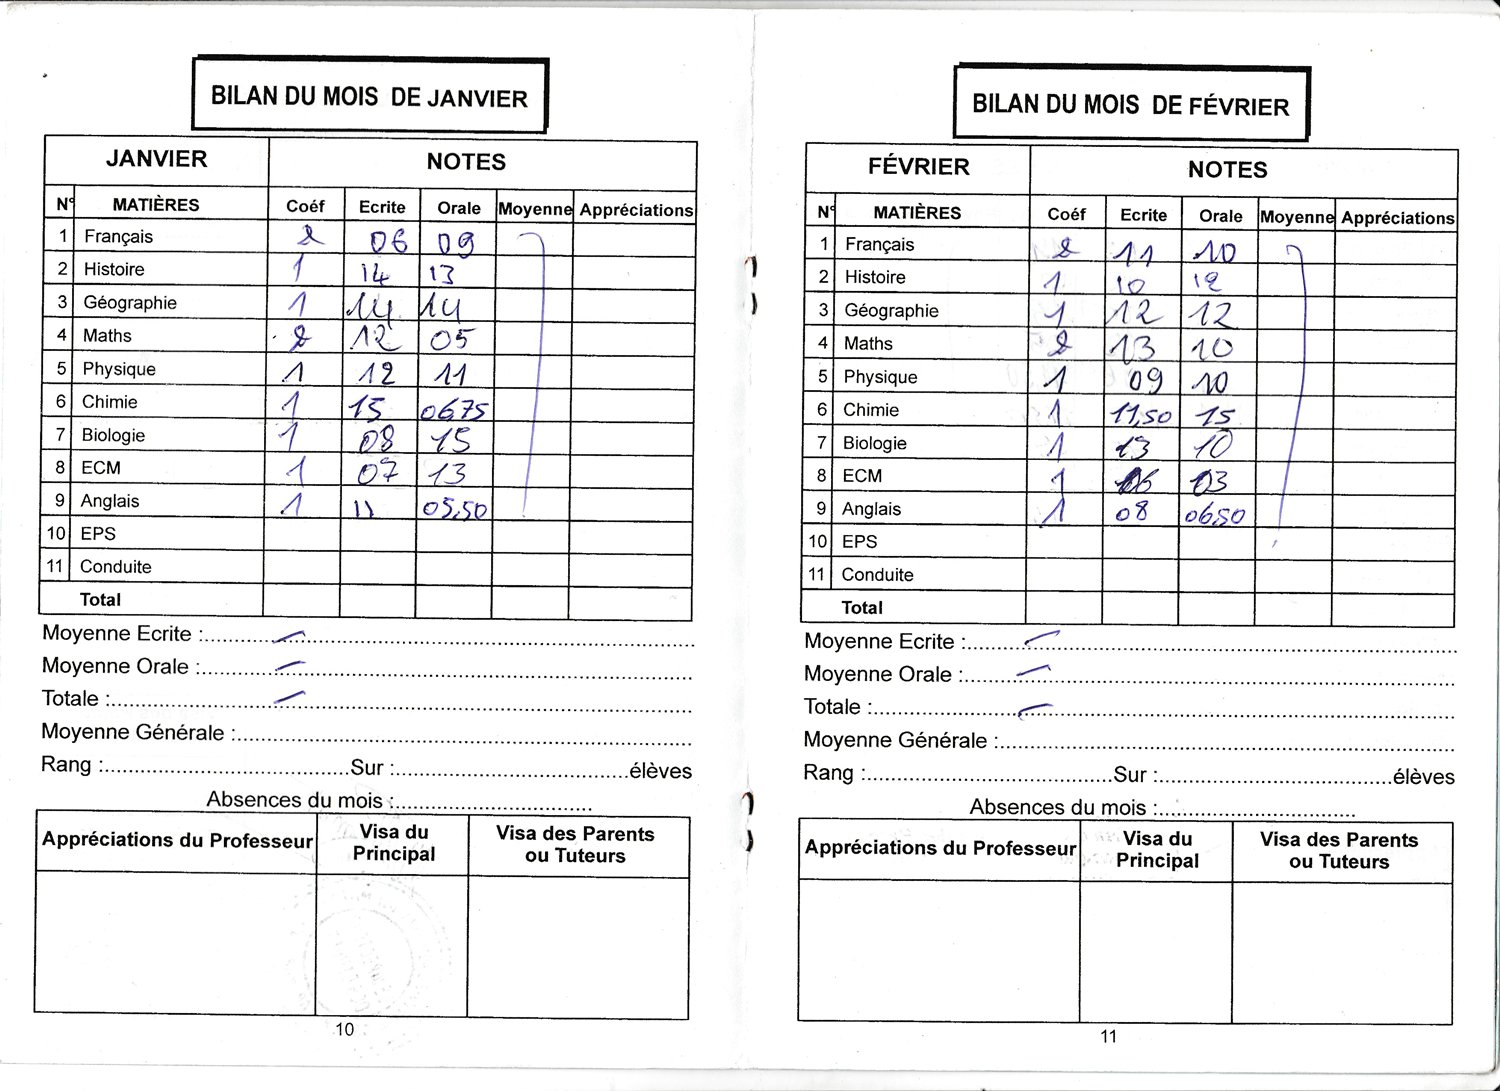 BILAN DU MOIS DE JANVIER
JANVIER NOTES
N° MATIÈRES Coéf Ecrite Orale Moyenne Appréciations
1 Français 2 06 09
2 Histoire 1 14 13
3 Géographie 1 14 14
4 Maths 2 12 05
5 Physique 1 12 11
6 Chimie 1 15 0675
7 Biologie 1 08 15
8 ECM 1 07 13
9 Anglais 1 11 05,50
10 EPS
11 Conduite
Total
Moyenne Ecrite :
Moyenne Orale :
Totale :
Moyenne Générale :
Rang : Sur : élèves
Absences du mois :
Appréciations du Professeur
Visa du Principal
Visa des Parents ou Tuteurs
10
BILAN DU MOIS DE FÉVRIER
FÉVRIER NOTES
N° MATIÈRES Coéf Ecrite Orale Moyenne Appréciations
1 Français 2 11 10
2 Histoire 1 10 12
3 Géographie 1 12 12
4 Maths 2 13 10
5 Physique 1 09 10
6 Chimie 1 11,50 15
7 Biologie 1 13 10
8 ECM 1 06 03
9 Anglais 1 08 0650
10 EPS
11 Conduite
Total
Moyenne Ecrite :
Moyenne Orale :
Totale :
Moyenne Générale :
Rang : Sur : élèves
Absences du mois :
Appréciations du Professeur
Visa du Principal
Visa des Parents ou Tuteurs
11